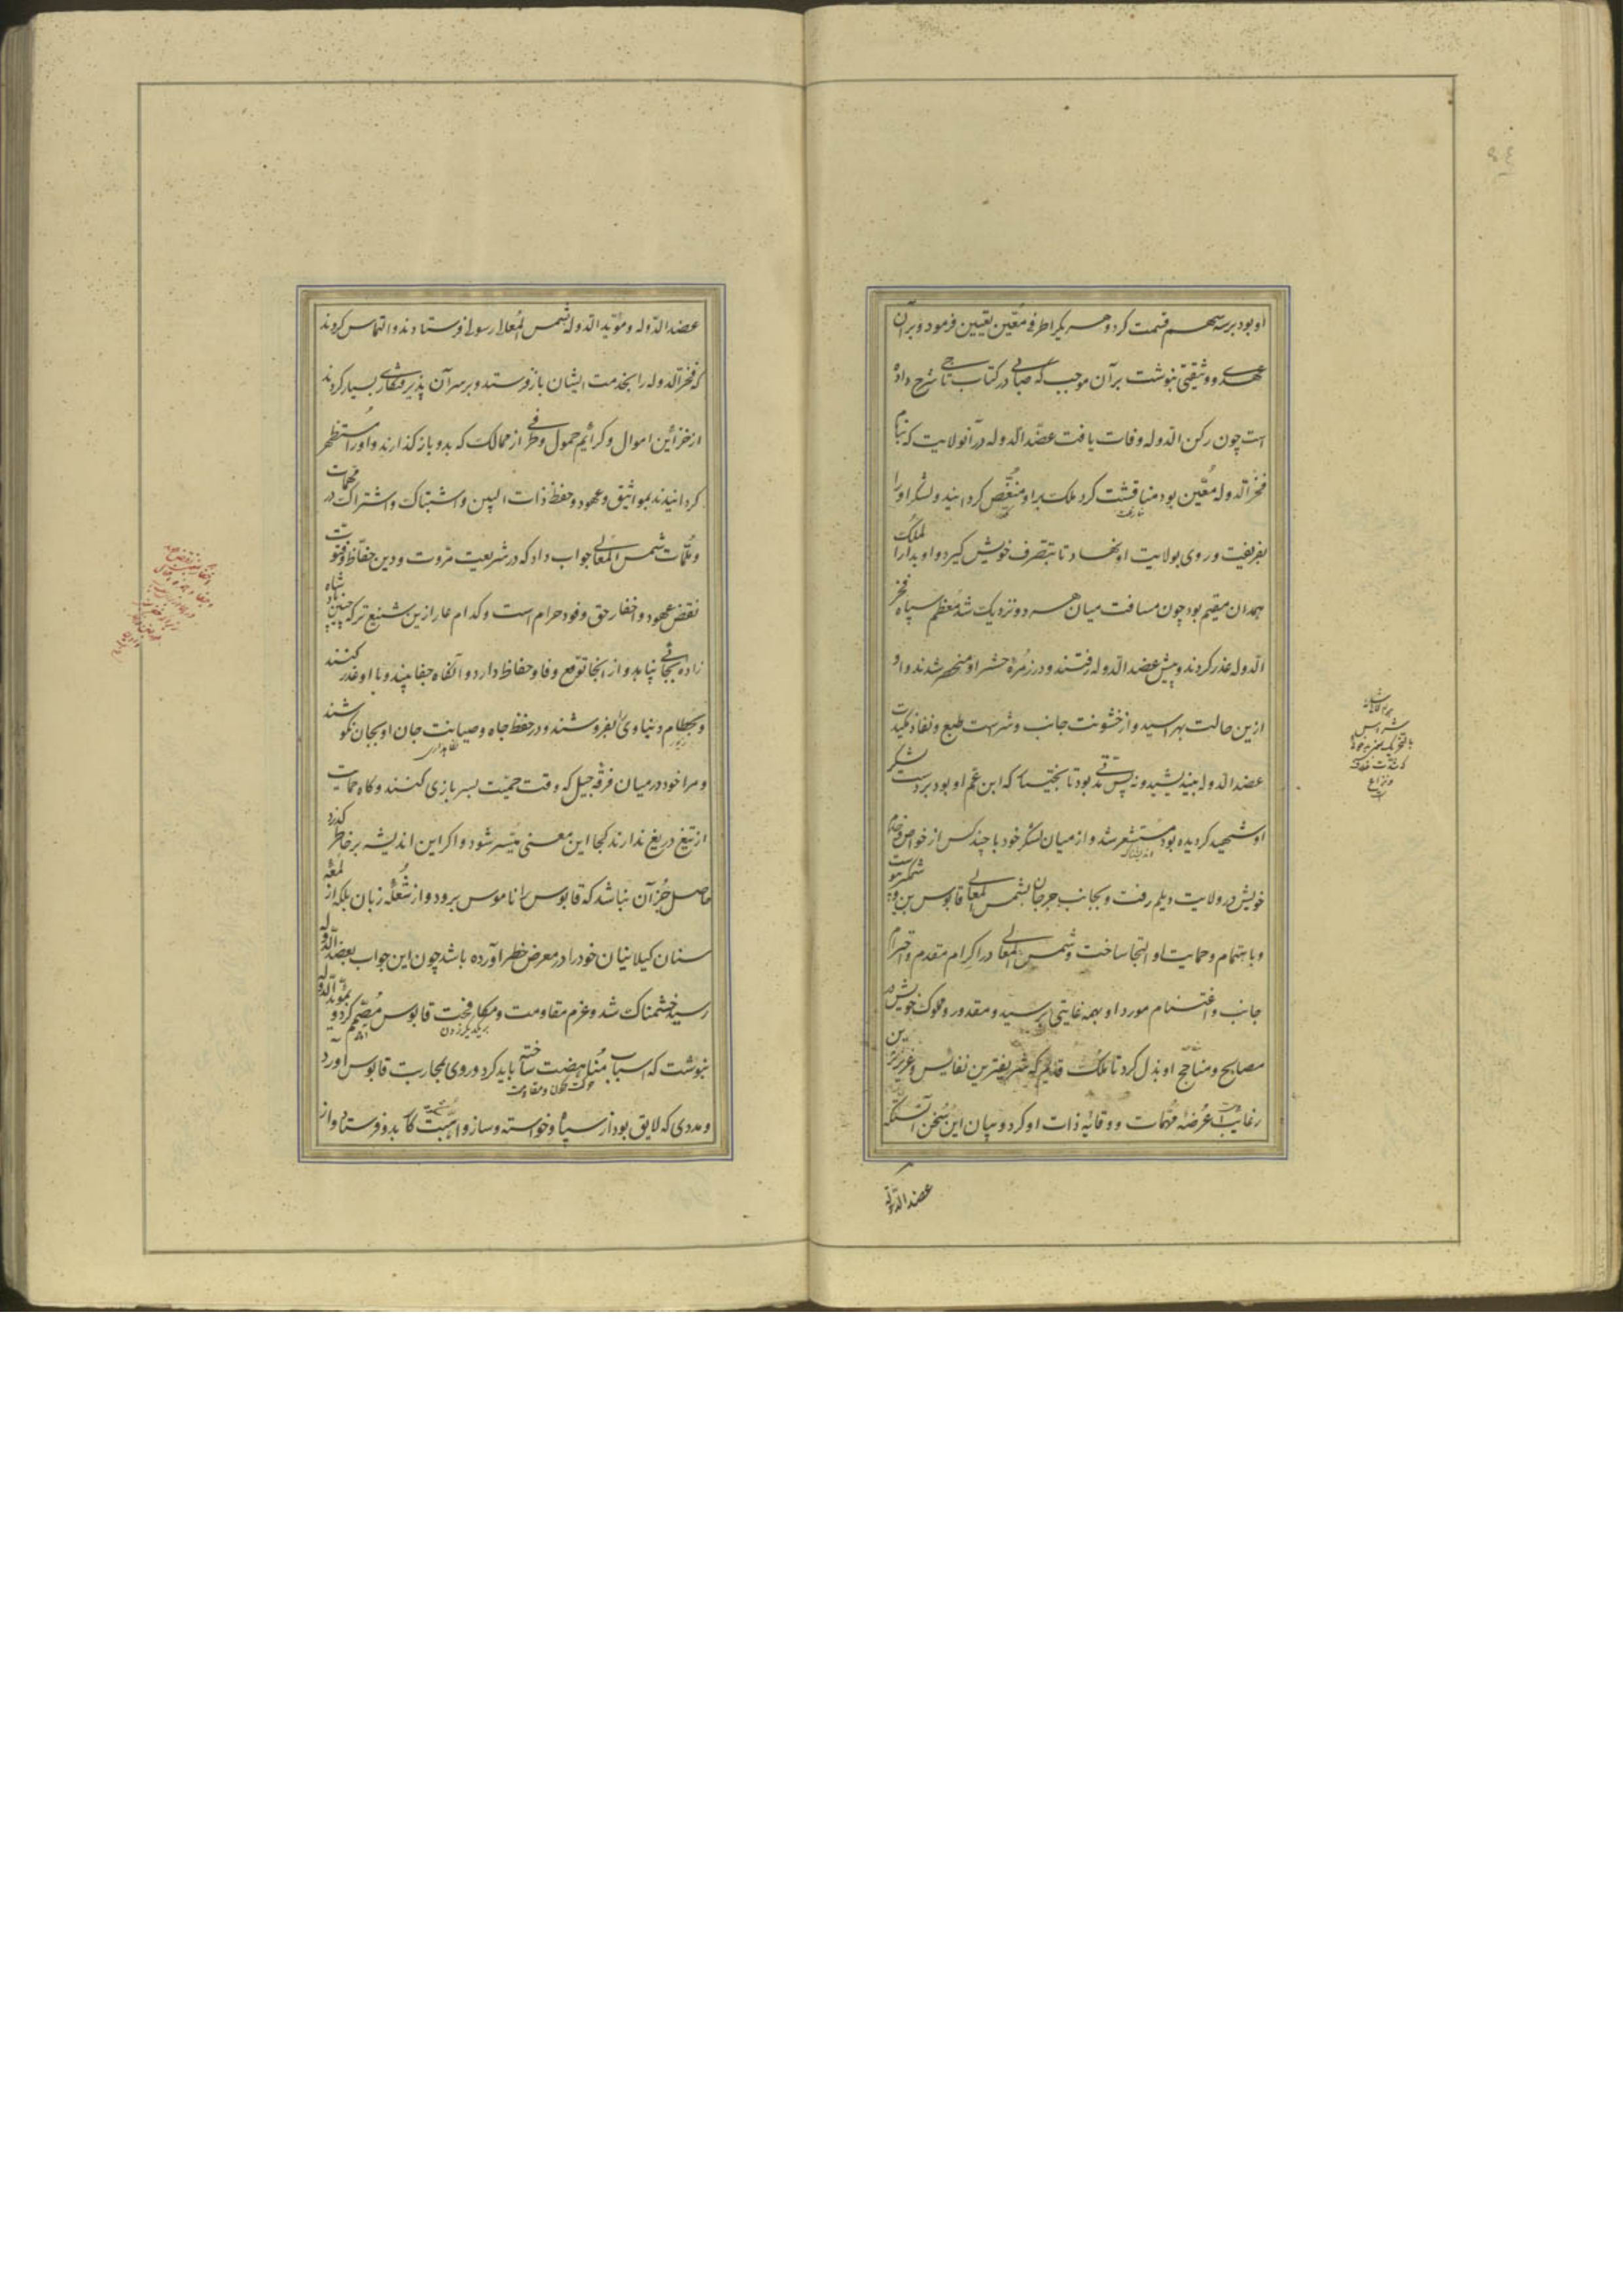 او بود بر سه سهم قسمت کرد و هر یکرا طرفی معین تعیین فرمود و بر آن
عهدی و وثیقتی نبوشت بر آن موجب که صابی در کتاب تاجی شرح داده
است چون رکن الدوله وفات یافت عضد الدوله در آنولایت که بنام
فخر الدوله معین بود مناقشت کرد ملک بر او منغص گردانید و لشکر او را
بفریفت و روی بولایت او نهاد تا بتصرف خویش گیرد و او بدار الملک
همدان مقیم بود چون مسافت میان هر دو نزدیک شد معظم سپاه فخر
الدوله غدر کردند و پیش عضد الدوله رفتند و در زمره حشر او منحصر شدند و او
ازین حالت بهراسید و از خشونت جانب و شرست طبع و نفاذ مکیدت
عضد الدوله بیندیشید و نه پس مدتی بود تا بختیار که ابن عم او بود بر دست لشکر
او شهید گردیده بود مستشعر شد و از میان لشکر خود با چند کس از خواص و خدم
خویش در ولایت دیلم رفت و بجانب جرجان بشمس المعالی قابوس بن وشمگیر پیوست
و باهتمام و حمایت او التجا ساخت و شمس المعالی در اکرام مقدم و احترام
جانب و اغتنام مورد او بهمه غایتی برسید و مقدور و مملوک خویش در
مصابح و مناجح او بذل کرد تا ملک قدیم که شریفترین نفایس و عزیزترین
رغایب است عرضه مهمات و وقایه ذات او کرد و بیان این سخن آنستکه
عضد الدوله
عضد الدوله و مؤید الدوله بشمس المعالی رسولان فرستادند و التماس کردند
که فخر الدوله را بخدمت ایشان باز فرستد و بر سر آن پذیرفتکاری بسیار کردند
از خزائن اموال و کرائم حمول و طرفی از ممالک که بدو باز گذارند و او را مستظهر
گردانیدند بمواثیق و عهود و حفظ ذات البین و اشتباک و اشتراک در مهمات
و ملمات شمس المعالی جواب داد که در شریعت مروت و دین حفاظ و فتوت
نقض عهود و اخفار حق وفود حرام است و کدام عار ازین شنیع تر که چنین پادشاه
زاده بجائی پناهد و از انجا توقع وفا و حفاظ دارد و آنگاه جفا بیند و با او غدر کنند
و بحطام دنیاوی بفروشند و در حفظ جاه و صیانت جان او بجان نکوشند
و مرا خود در میان فرقه جیل که وقت حمیت بسر بازی کنند و گاه حمایت
از تیغ دریغ ندارند کجا این معنی میسر شود و اگر این اندیشه بر خاطر گذرد
حاصل جز آن نباشد که قابوس را ناموس برود و از شعله زبان بلکه از لمعه
سنان گیلانیان خود را در معرض خطر آورده باشد چون این جواب بعضد الدوله
رسید خشمناک شد و عزم مقاومت و مکافحت قابوس مصمم کرد و بمؤید الدوله
نبوشت که اسباب مناهضت ساخته باید کرد و روی بمحاربت قابوس آورد
و مددی که لایق بود از سپاه و خواسته و ساز و اهبت کار بدو فرستاد و از